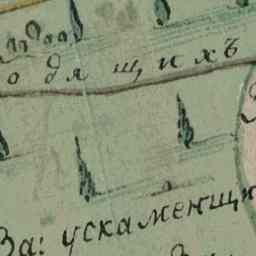 одящихъ
За: ускаменщи